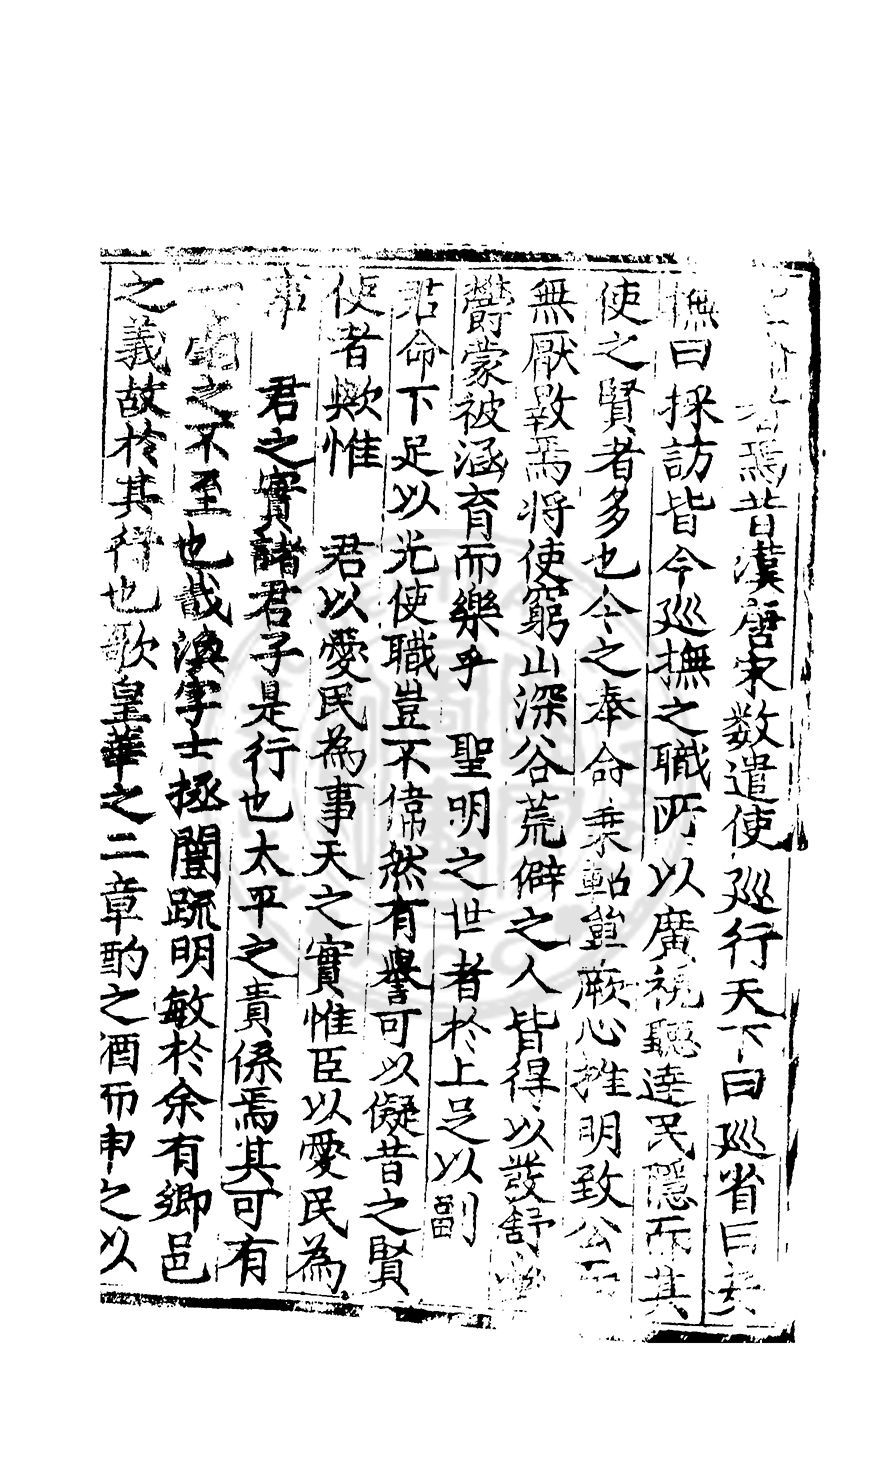 焉昔漢唐宋数遣使廵行天下曰廵省曰安
撫曰採訪皆今廵撫之職所以廣視聽達民隱而其
使之賢者多也今之奉命乗軺誰厥心推明致公而
無厭斁焉将使窮山深谷荒僻之人皆得以發舒
欝蒙被涵育而樂乎 聖明之世者於上足以副
君命下足以光使職豈不偉然有譽可以儗昔之賢
使者歟惟 君以愛民為事天之實惟臣以愛民為
事 君之實諸君子是行也太平之責係焉其可有
一之不至也戴渙字士拯闓䟽明敏於余有郷邑
之義故於其行也歌皇華之二章酌之酒而申之以